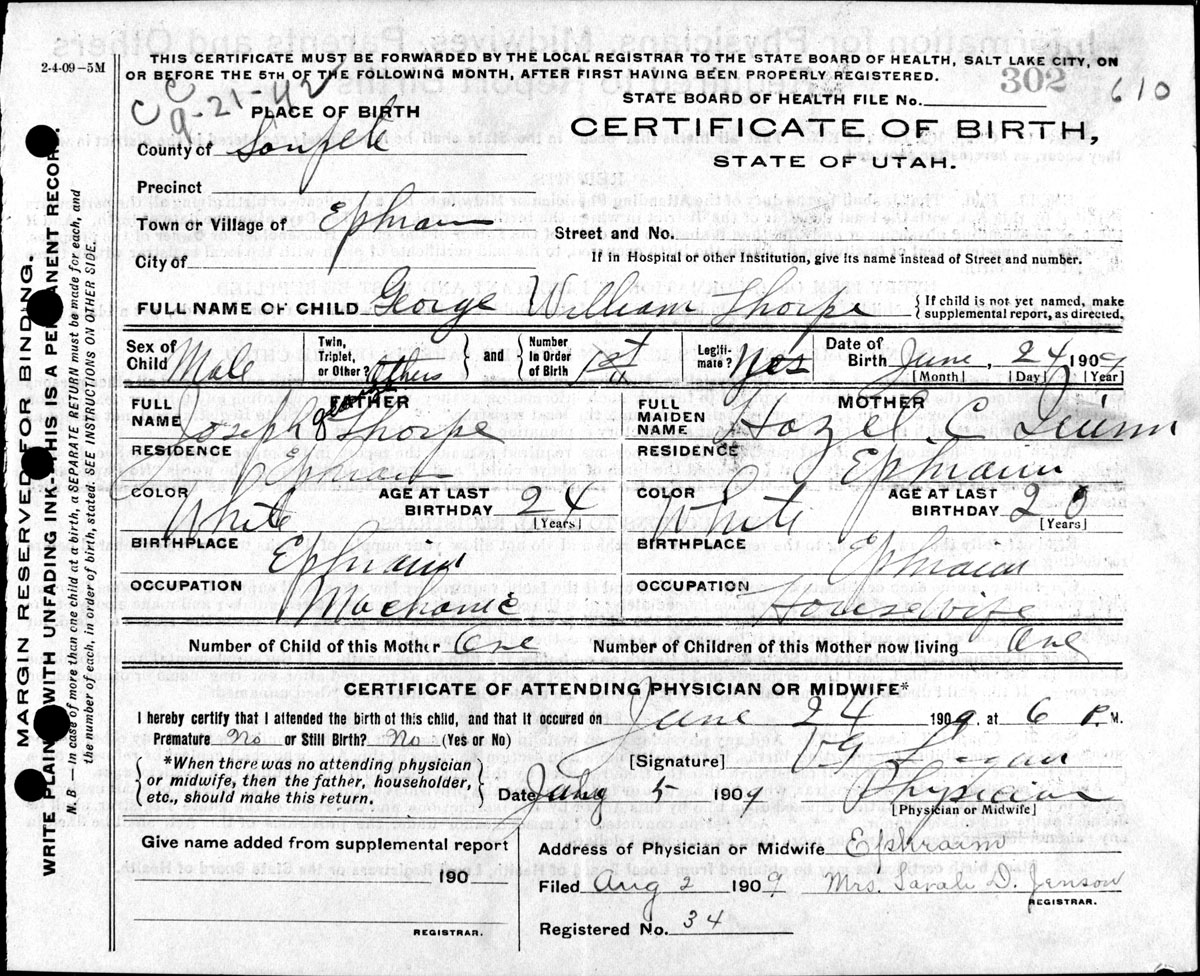 2-4-09-5M
THIS CERTIFICATE MUST BE FORWARDED BY THE LOCAL REGISTRAR TO THE STATE BOARD OF HEALTH, SALT LAKE CITY, ON
OR BEFORE THE 5TH OF THE FOLLOWING MONTH, AFTER FIRST HAVING BEEN PROPERLY REGISTERED.
302
610
CC
9-21-42
STATE BOARD OF HEALTH FILE No.
PLACE OF BIRTH
CERTIFICATE OF BIRTH,
STATE OF UTAH.
County of Sanpete
Precinct
Town or Village of Ephraim
Street and No.
City of
If in Hospital or other Institution, give its name instead of Street and number.
FULL NAME OF CHILD George William Thorpe { If child is not yet named, make supplemental report, as directed.
Sex of Child Male Twin, Triplet, or Other? Others } and { Number in Order of Birth 1st Legitimate? Yes Date of Birth June, 24 1909
[Month] [Day] [Year]
FATHER
FULL NAME Joseph Thorpe
MOTHER
FULL MAIDEN NAME Hazel C
RESIDENCE Ephraim
RESIDENCE Ephraim
COLOR White AGE AT LAST BIRTHDAY 24 [Years]
COLOR White AGE AT LAST BIRTHDAY 20 [Years]
BIRTHPLACE Ephraim
BIRTHPLACE Ephraim
OCCUPATION Mechanic
OCCUPATION Housewife
Number of Child of this Mother One Number of Children of this Mother now living One
CERTIFICATE OF ATTENDING PHYSICIAN OR MIDWIFE*
I hereby certify that I attended the birth of this child, and that it occured on June 24 1909, at 6 P. M.
Premature No or Still Birth? No (Yes or No)
[Signature]
{ *When there was no attending physician or midwife, then the father, householder, etc., should make this return. }
Date July 5 1909 Physician
[Physician or Midwife]
Give name added from supplemental report
190
REGISTRAR.
Address of Physician or Midwife Ephraim
Filed Aug 2 1909 Mrs. Sarah D. Jenson
REGISTRAR.
Registered No. 34
MARGIN RESERVED FOR BINDING.
WRITE PLAINLY WITH UNFADING INK-THIS IS A PERMANENT RECORD.
N. B.—In case of more than one child at a birth, a SEPARATE RETURN must be made for each, and
the number of each, in order of birth, stated. SEE INSTRUCTIONS ON OTHER SIDE.